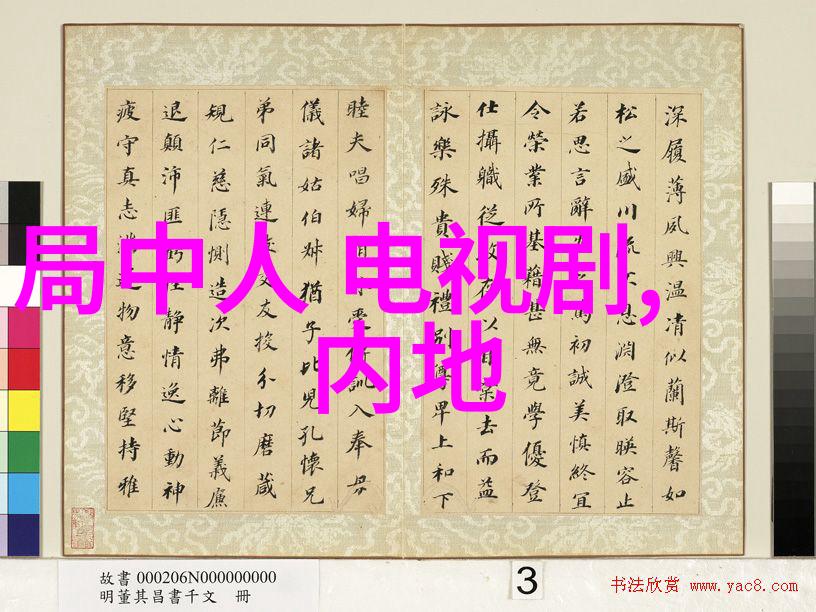 深履薄夙興温凊似蘭斯馨如
松之盛川流不息淵澄取暎容止
若思言辭初誠美慎終宜
令榮業所基藉甚無竟學優登
仕攝職從政存以甘棠去而益
詠樂殊貴賤禮別尊卑上和下
睦夫唱婦受訓入奉母
儀諸姑伯叔猶子比兒孔懷兄
弟同氣連枝交友投分切磨箴
規仁慈隱惻造次弗離節義廉
退顛沛匪虧性靜情逸心動神
疲守真志滿逐物意移堅持雅
局中人 电视剧,
内地
故書 000206N000000000
明董其昌書千文 冊
3
书法欣赏 www.yac8.com